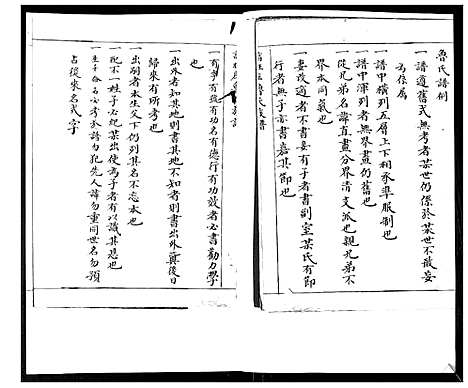 魯氏譜例
一譜遵舊式無考者某世仍係於某世不敢妄
為俟焉
一譜中橫列五層上下相承準服制也
一譜中渾列者無界畫仍舊也
一從兄弟名諱直畫分界清支派也親兄弟不
界本同氣也
一妻改適者不書妾有子者書副室某氏有節
行者無子亦書嘉其節也
一有爵有號有功名有德行有功效者必書勸力學
也
一出外者知其地則書其地不知者則書出外冀後日
歸來有所考也
一出嗣者本生父下仍列其名不忘本也
一配不一姓子必紀某出使為子者有以識其恩也
一生子命名必考於譜勿犯先人諱勿重同世名勿預
占後來名式字